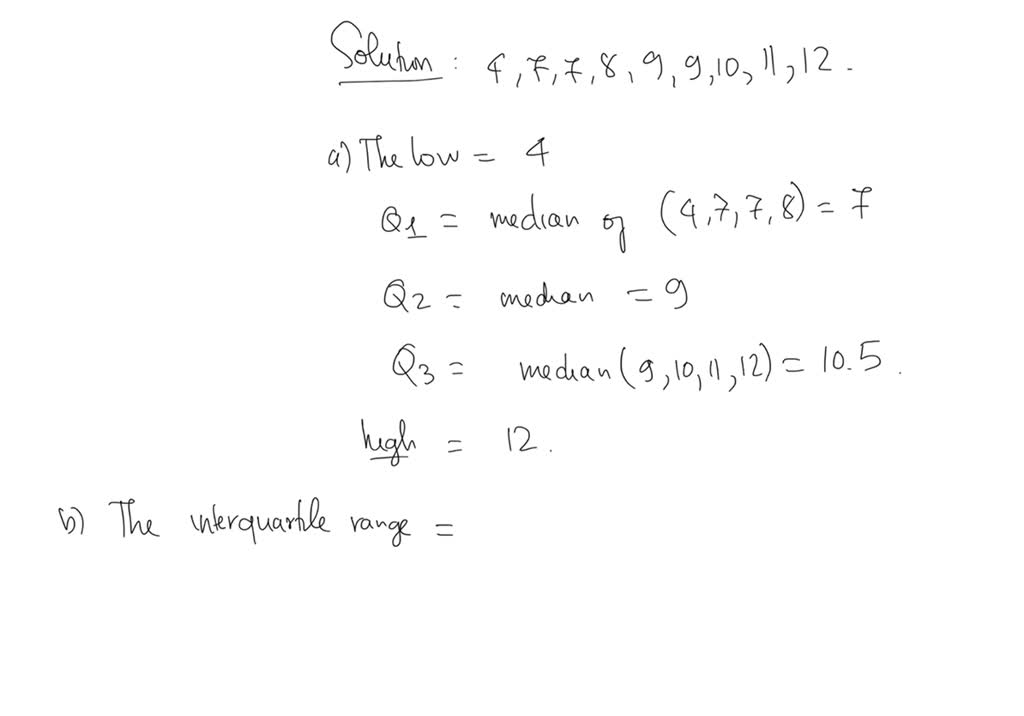 Solution : 4, 7, 7, 8, 9, 9, 10, 11, 12.
a) The low = 4
Q1 = median of (4, 7, 7, 8) = 7
Q2 = median = 9
Q3 = median (9, 10, 11, 12) = 10.5.
high = 12.
b) The interquartile range =